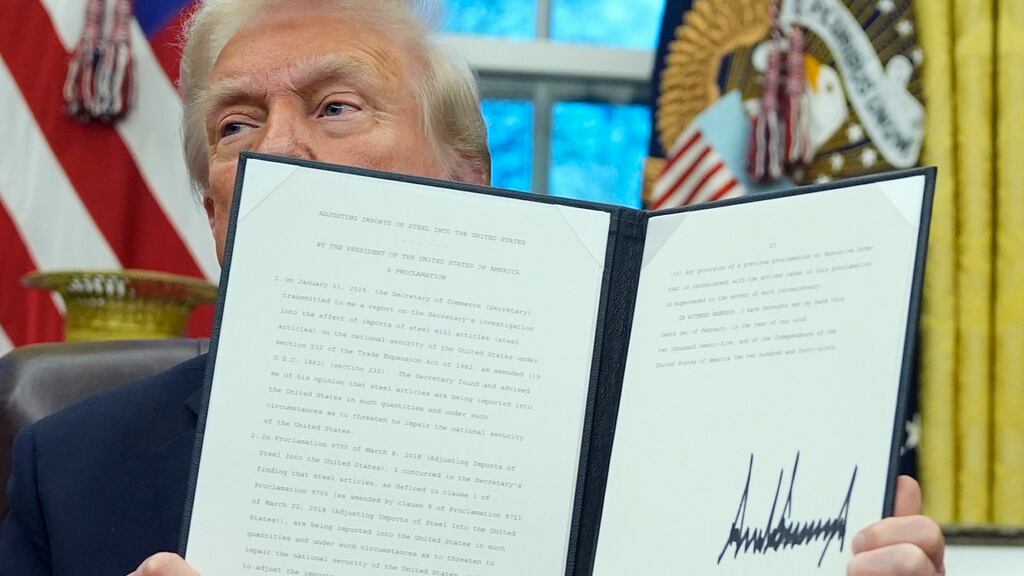 PLURIBUS UNUM
ADJUSTING IMPORTS OF STEEL INTO THE UNITED STATES
- - - - - - -
BY THE PRESIDENT OF THE UNITED STATES OF AMERICA
A PROCLAMATION
1. On January 11, 2018, the Secretary of Commerce (Secretary)
transmitted to me a report on the Secretary's investigation
into the effect of imports of steel mill articles (steel
articles) on the national security of the United States under
section 232 of the Trade Expansion Act of 1962, as amended (19
U.S.C. 1862) (section 232). The Secretary found and advised
me of his opinion that steel articles are being imported into
the United States in such quantities and under such
circumstances as to threaten to impair the national security
of the United States.
2. In Proclamation 9705 of March 8, 2018 (Adjusting Imports of
Steel Into the United States), I concurred in the Secretary's
finding that steel articles, as defined in clause 1 of
Proclamation 9705 (as amended by clause 8 of Proclamation 9711
of March 22, 2018 (Adjusting Imports of Steel Into the United
States)), are being imported into the United States in such
quantities and under such circumstances as to threaten to
impair the national security of the United States
to adjust the imports
(15) Any provision of a previous proclamation or Executive Order
that is inconsistent with the actions taken in this proclamation
is superseded to the extent of such inconsistency.
IN WITNESS WHEREOF, I have hereunto set my hand this
tenth day of February, in the year of our Lord
two thousand twenty-five, and of the Independence of the
United States of America the two hundred and forty-ninth.